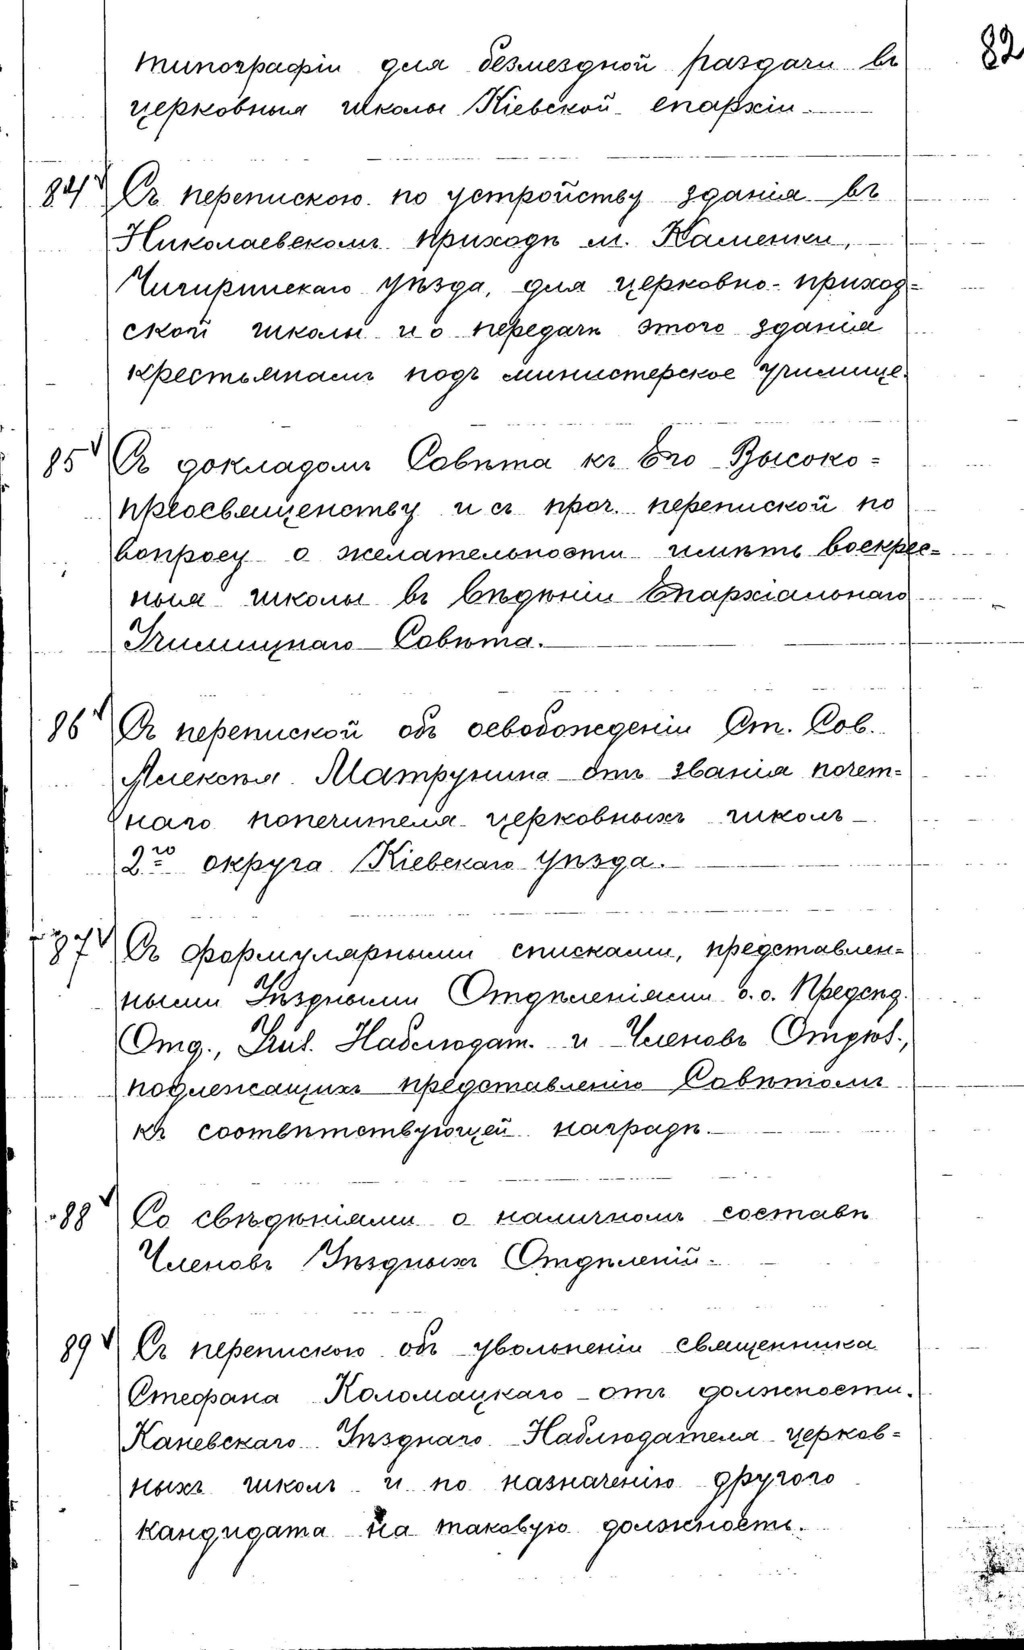 82
типографіи для безмездной раздачи въ
церковныя школы Кіевской епархіи.
84 Съ перепискою по устройству зданія въ
Николаевскомъ приходѣ м. Каменки,
Чигиринскаго уѣзда, для церковно-приход=
ской школы и о передачѣ этого зданія
крестьянамъ подъ министерское училище.
85 Съ докладомъ Совѣта къ Его Высоко=
преосвященству и съ проч. перепиской по
вопросу о желательности имѣть воскрес=
ныя школы въ вѣдѣніи Епархіальнаго
Училищнаго Совѣта.
86 Съ перепиской объ освобожденіи Ст. Сов.
Алексѣя Матрунина отъ званія почет=
наго попечителя церковныхъ школъ
2го округа Кіевскаго уѣзда.
87 Съ формулярными списками, представлен=
ными Уѣздными Отдѣленіями о.о. Предсѣд.
Отд., Уѣзд. Наблюдат. и Членовъ Отдѣл.,
подлежащихъ представленію Совѣтомъ
къ соотвѣтствующей наградѣ.
88 Со свѣдѣніями о наличномъ составѣ
Членовъ Уѣздныхъ Отдѣленій.
89 Съ перепискою объ увольненіи священника
Стефана Коломацкаго отъ должности
Каневскаго Уѣзднаго Наблюдателя церков=
ныхъ школъ и по назначенію другого
кандидата на таковую должность.